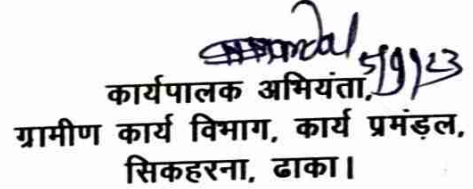 5/9/23
कार्यपालक अभियंता,
ग्रामीण कार्य विभाग, कार्य प्रमंड़ल,
सिकहरना, ढाका।